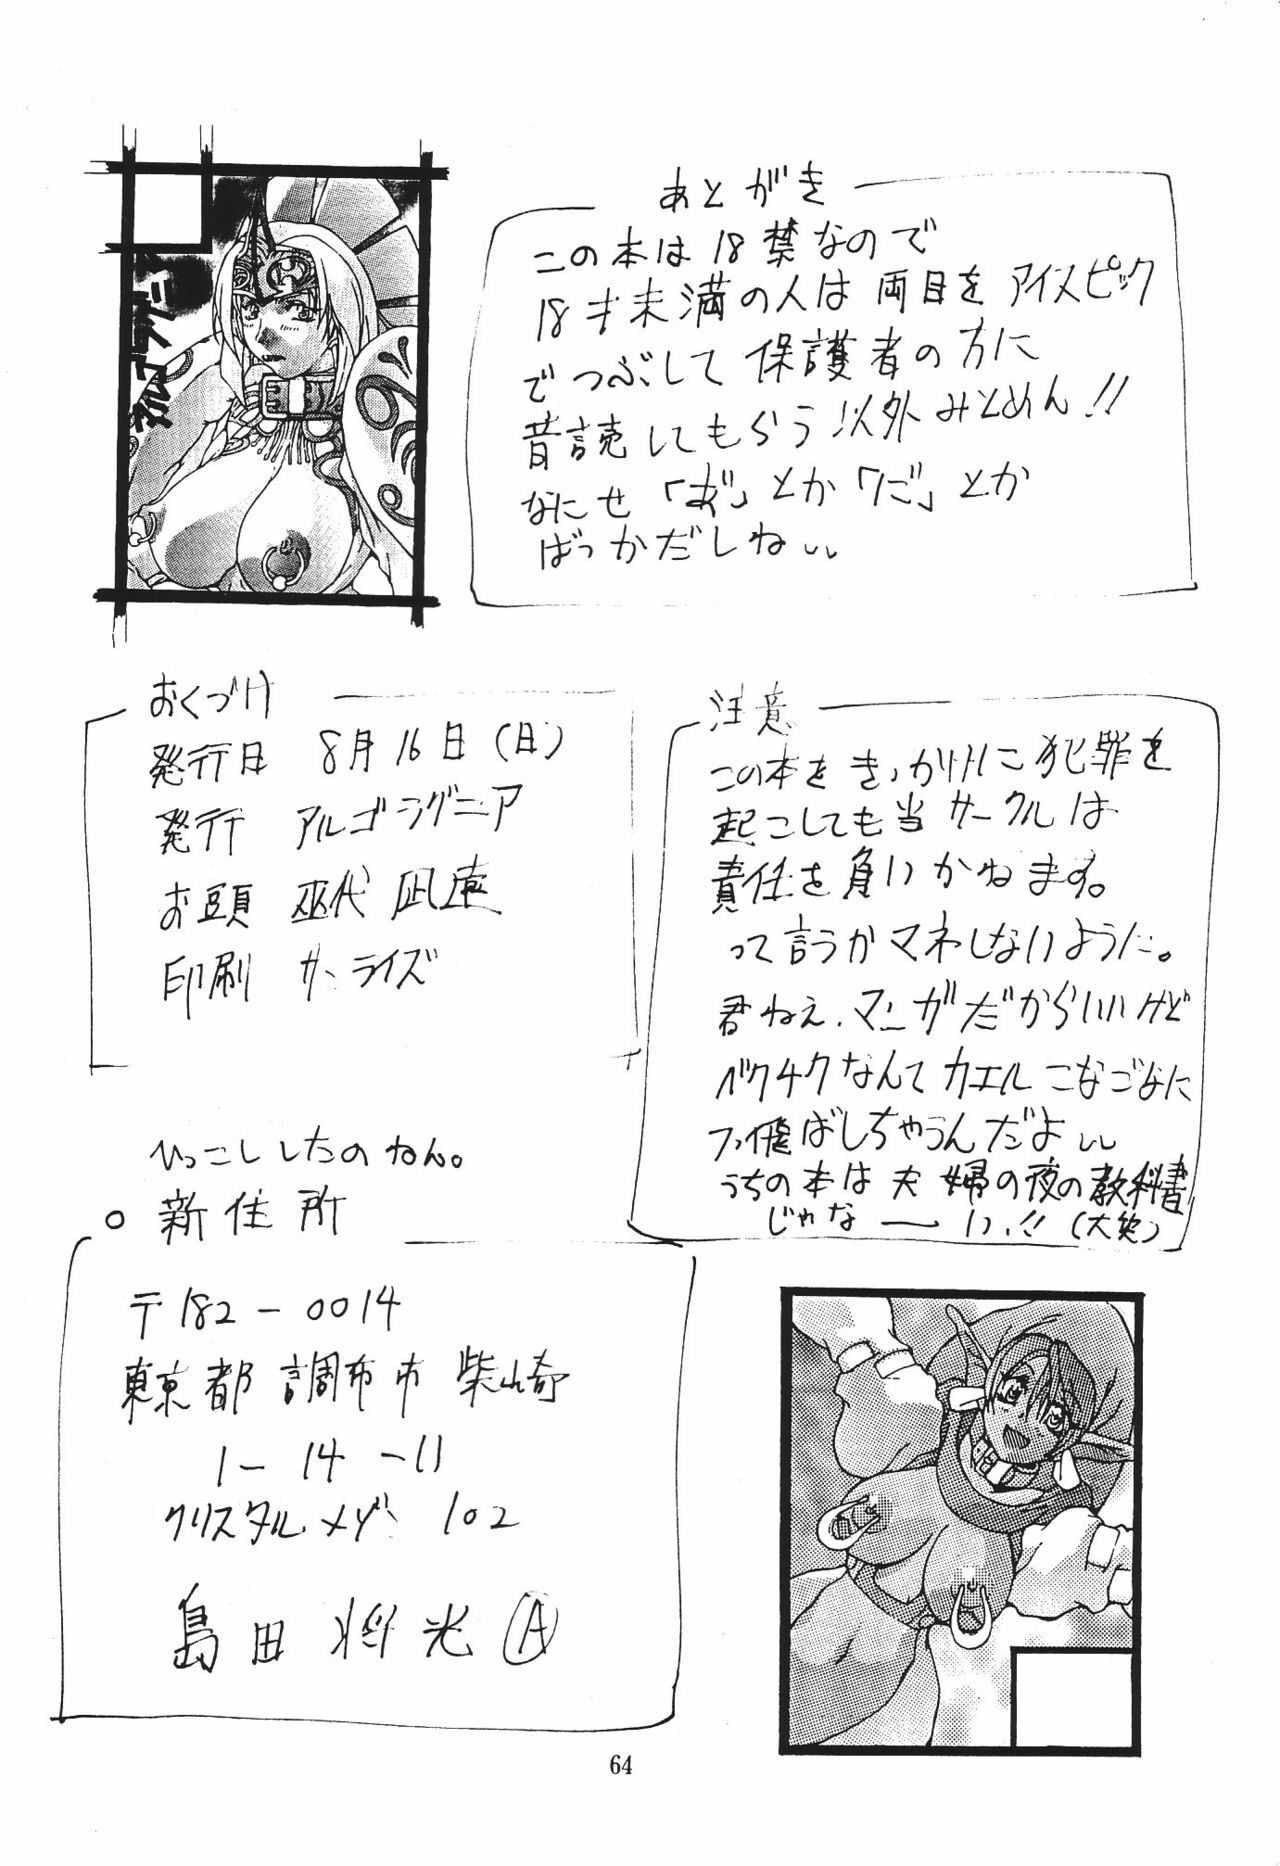 あとがき
この本は18禁なので
18才未満の人は両目をアイスピック
でつぶして保護者の方に
音読してもらう以外みとめん!!
なにせ「あ゛」とか「ひだ」とか
ばっかだしねぃぃ
おくづけ
発行日 8月16日(日)
発行 アルゴラグニア
お頭 巫代凪遠
印刷 サンライズ
注意
この本をきっかけに犯罪を
起こしても当サークルは
責任を負いかねます。
って言うかマネしないように。
君ねえ、マンガだからいいけど
バクチクなんてカエルこなごなに
フッ飛ばしちゃうんだよぃぃ
うちの本は夫婦の夜の教科書
じゃなーい!!(大笑)
ひっこししたのねん。
○新住所
〒182-0014
東京都調布市柴崎
1-14-11
クリスタルメゾン102
島田将光 Ⓐ
64